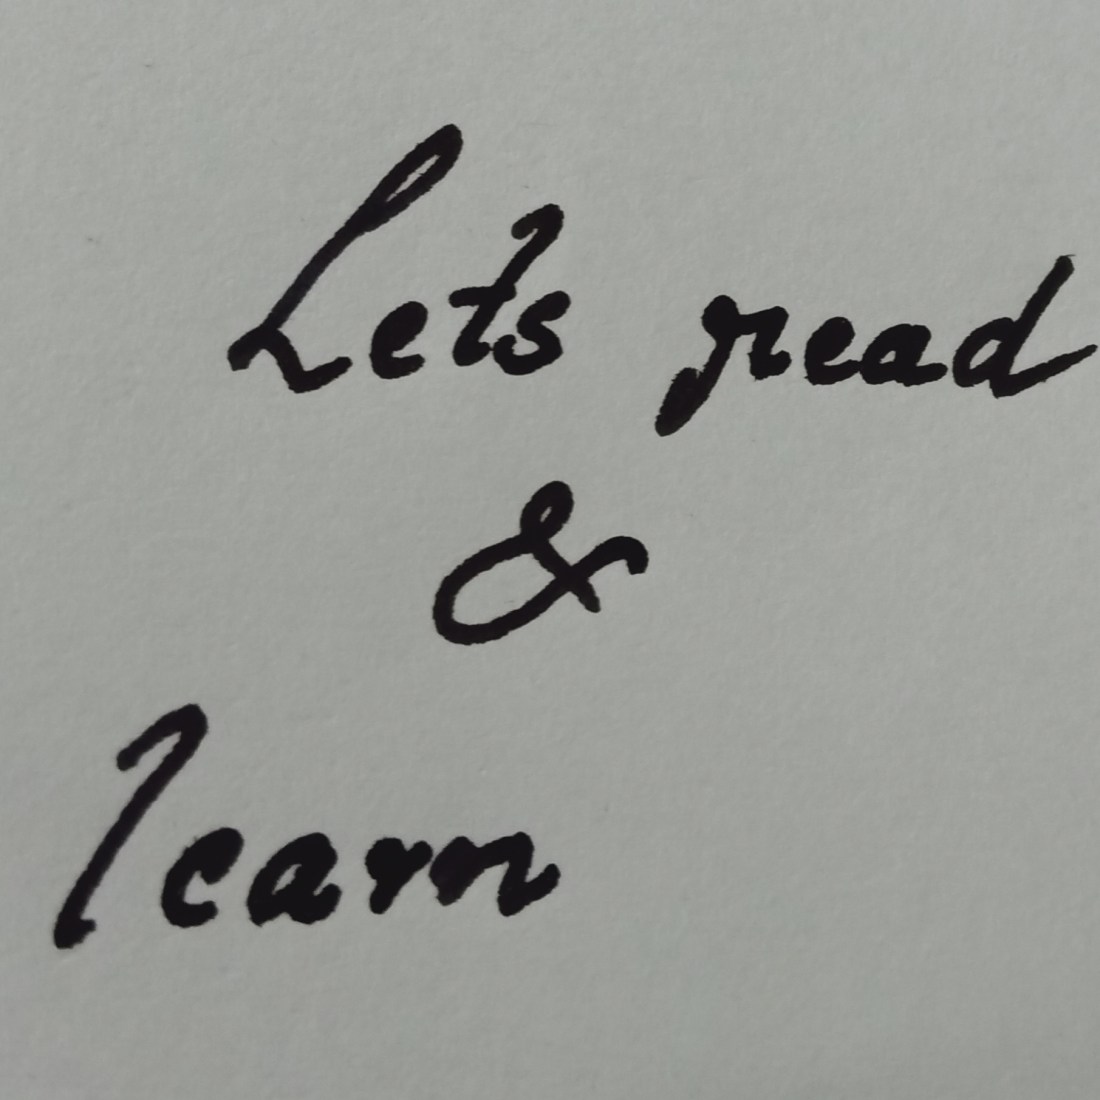 Lets read
&
learn